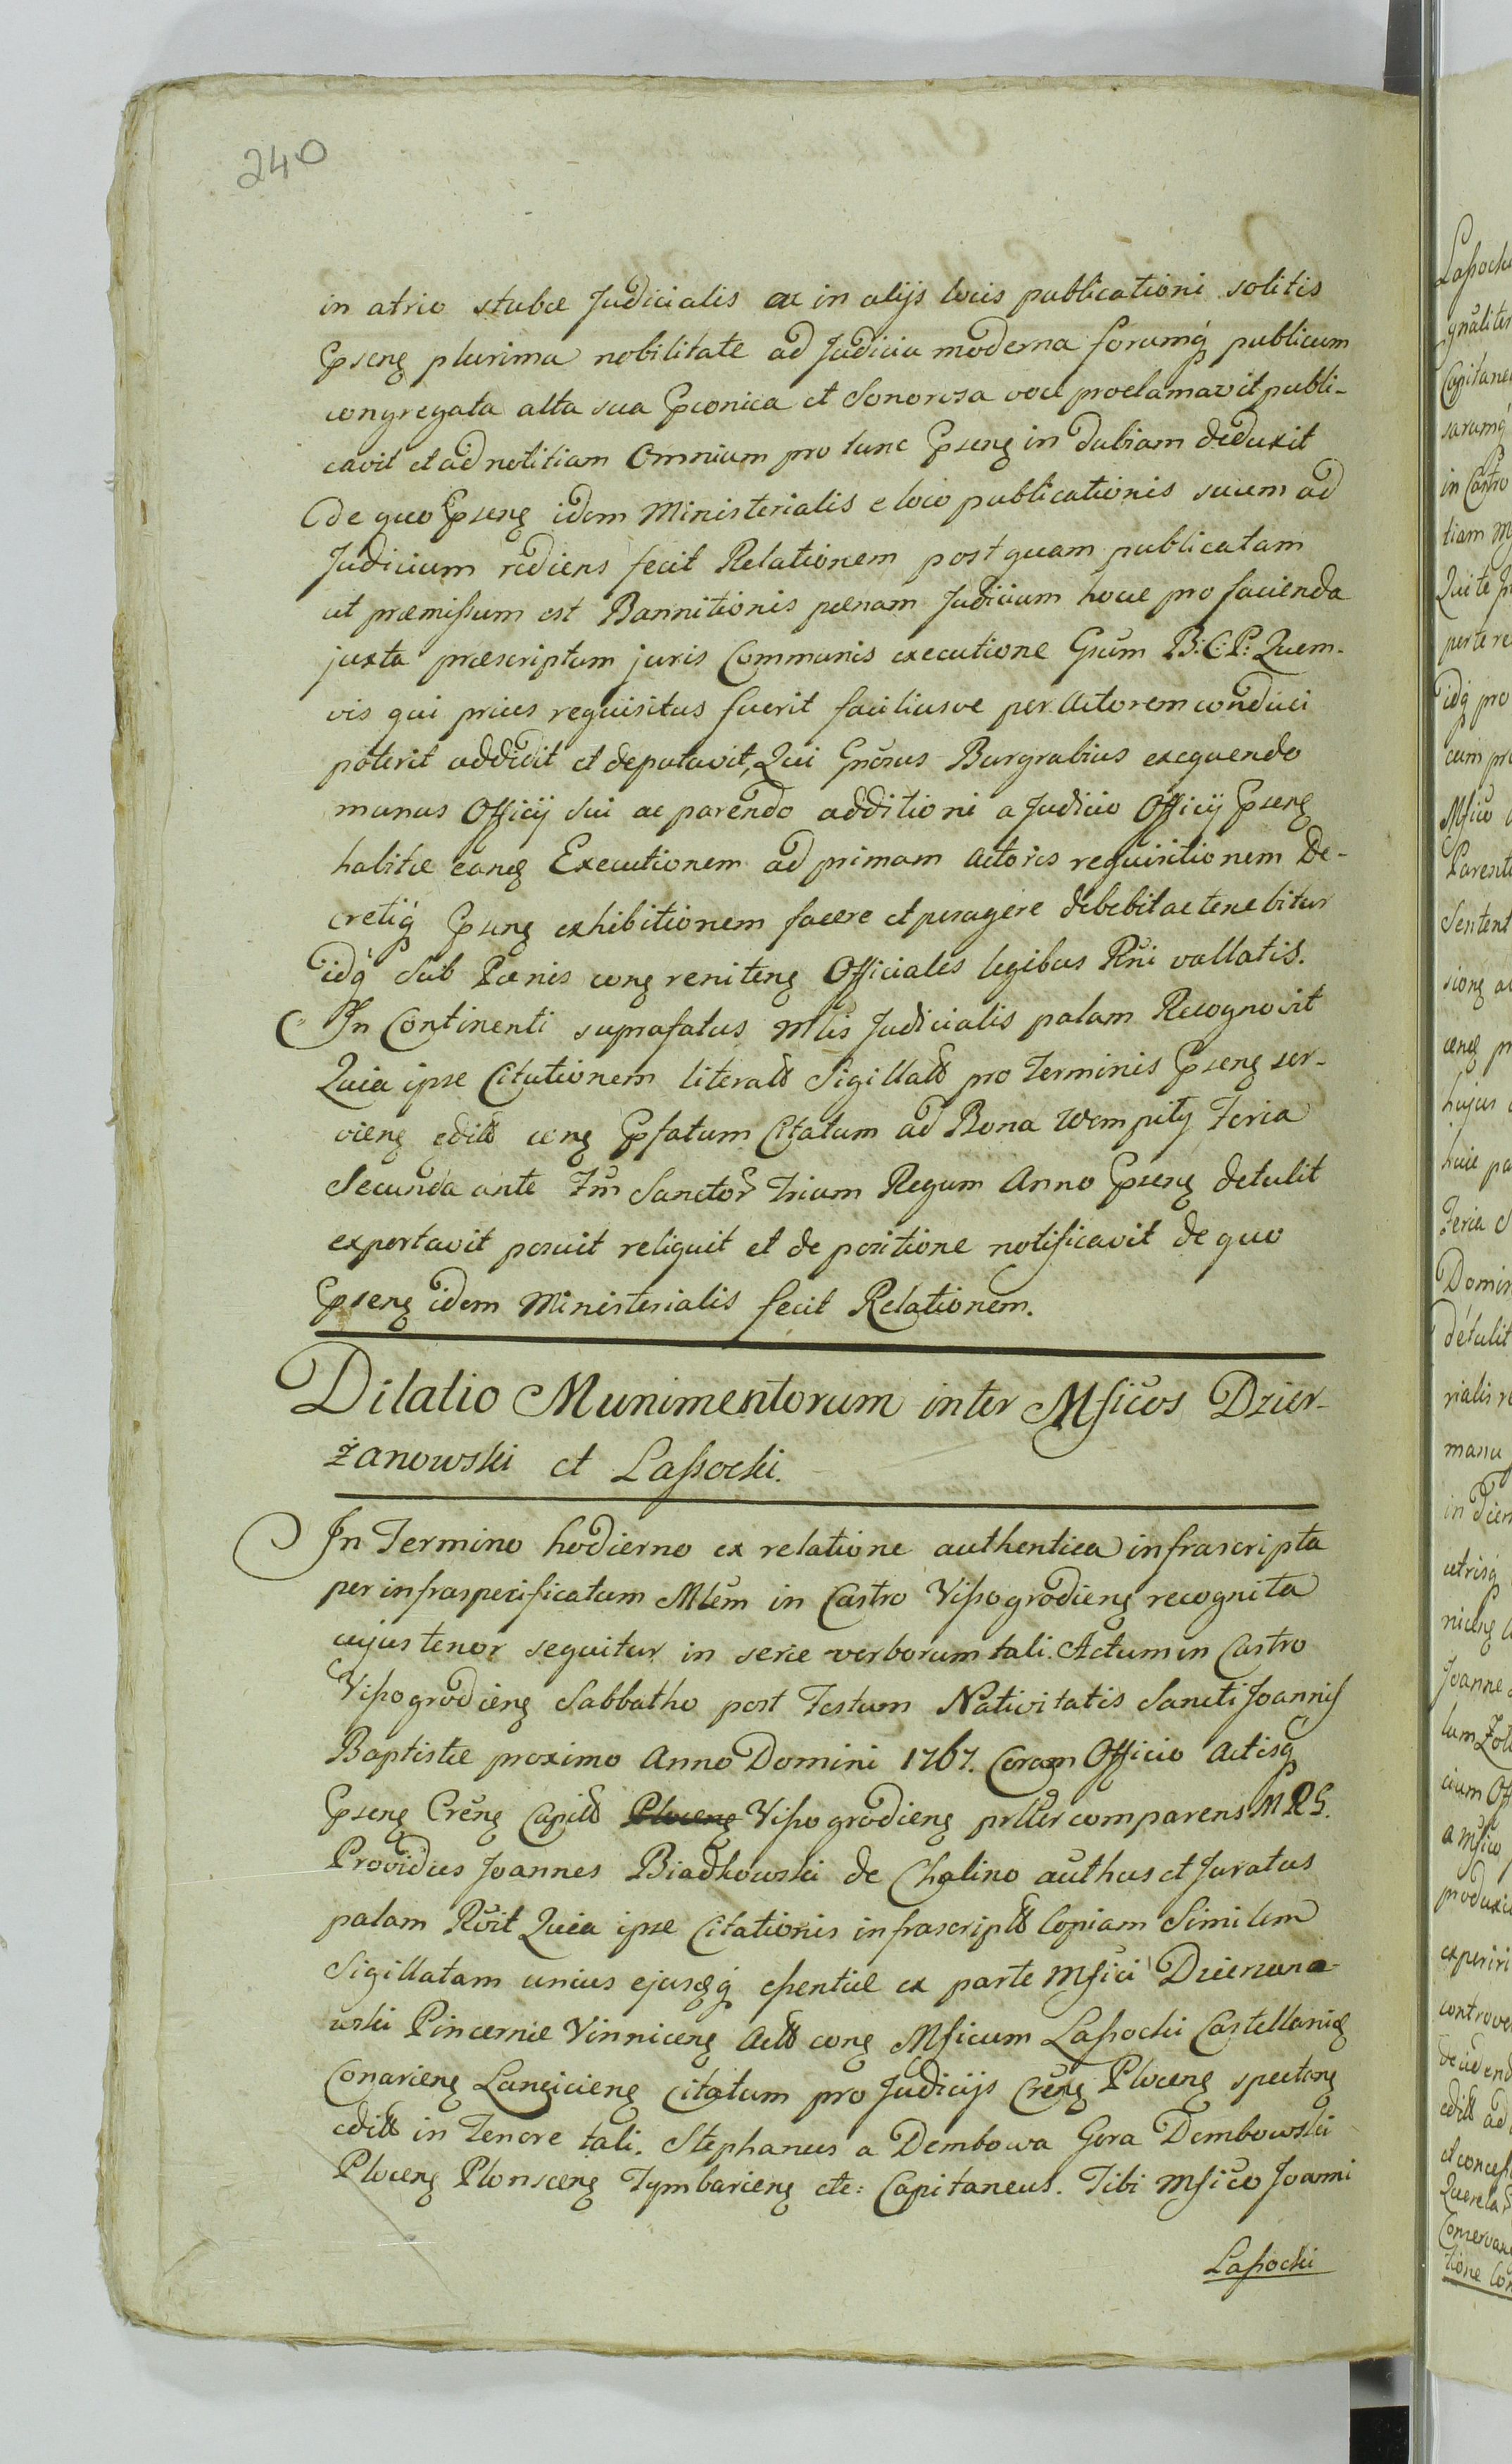 240
in atrio stubæ Judicialis ac in alijs locis publicationi solitis
Ꝓseng plurima nobilitate ad Judicia moderna forumq́ publicum
congregata alta sua Ꝓconica et Sonorosa voce proclamavit publi-
cavit et ad notitiam Omnium pro tunc Ꝓseng in dubiam deduxit
de quo Ꝓseng idem Ministerialis e loco publicationis suum ad
Judicium rediens fecit Relationem post quam publicatam
ut præmissum est Bannitionis pœnam Judicium hocce pro facienda
juxta præscriptum juris Communis executione Gsum B: C: P: Quem-
vis qui prius requisitus fuerit faciliusve per Actorem conduci
poterit addidit et deputavit, Qui Gnosus Burgrabius exequendo
munus Officij sui ac parendo additioni a Judicio Officij Ꝓseng
habitæ eang Executionem ad primam Actoris requisitionem De-
cretiq́ Ꝓseng exhibitionem facere et peragere debebit ac tenebitur
idq́ Sub Pœnis cong reniteng Officiales legibus Rni vallatis.
In Continenti suprafatus Mlis Judicialis palam Recognovit
Quia ipse Citationem literall Sigillall pro Terminis Ꝓseng ser-
vieng edill cong Ꝓfatum Citatum ad Bona Wempity Feria
Secunda ante Fm Sanctor Trium Regum Anno Ꝓseng detulit
exportavit posuit reliquit et de positione notificavit de quo
Ꝓseng idem Ministerialis fecit Relationem.
Dilatio Munimentorum inter Mficos Dzier-
żanowski et Lassocki.
In Termino hodierno ex relatione authentica infrascripta
per infraspecificatum Mlem in Castro Vissogrodieng recognita
cujus tenor sequitur in serie verborum tali. Actum in Castro
Vissogrodieng Sabbatho post Festum Nativitatis Sancti Joannis
Baptistæ proximo Anno Domini 1767. Coram Officio Actisq́
Ꝓseng Creng Capill Ploceng Vissogrodieng prller comparens M R G.
Providus Joannes Biadkowski de Chalino authus et Juratus
palam Rvit Quia ipse Citationis infrascripll Copiam Similem
Sigillatam unius ejusdq́ essentiæ ex parte Mfici Dzierzano-
wski Pincernæ Vinniceng Acll cong Mficum Lassocki Castellanid
Conarieng Lancicieng Citatum pro Judicijs Creng Ploceng spectang
edill in Tenore tali. Stephanus a Dembowa Gora Dembowski
Ploceng Plonsceng Tymbarieng etc: Capitaneus. Tibi Mfico Joanni
Lassocki